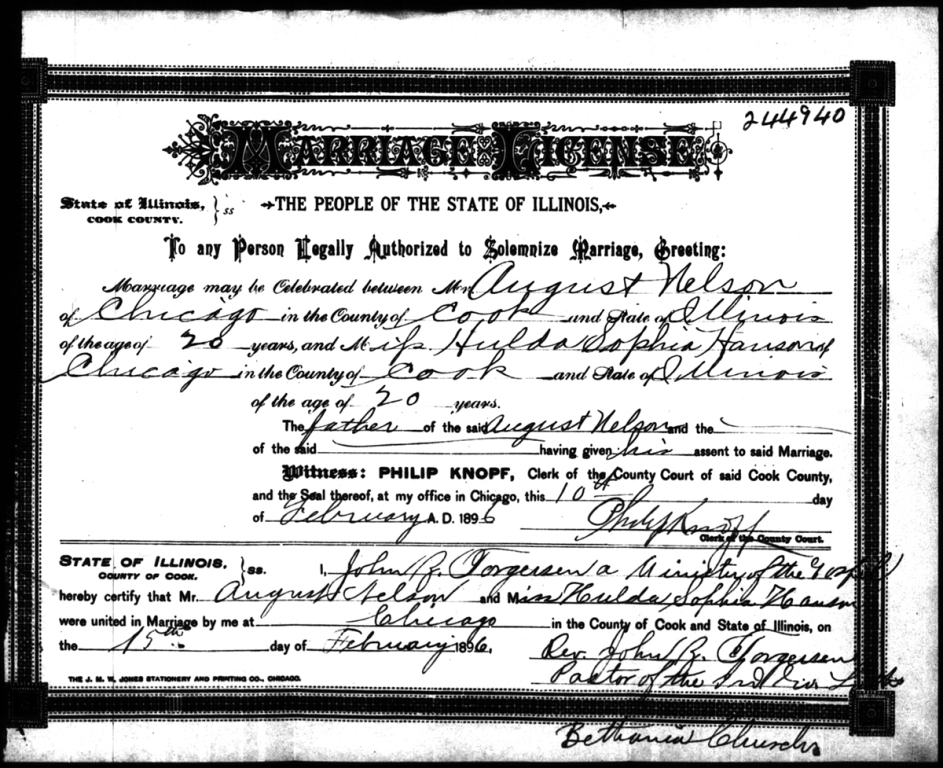 244940
MARRIAGE LICENSE
State of Illinois, } ss
COOK COUNTY.
THE PEOPLE OF THE STATE OF ILLINOIS,
To any Person Legally Authorized to Solemnize Marriage, Greeting:
Marriage may be Celebrated between Mr. August Nelson
of Chicago in the County of Cook and State of Illinois
of the age of 20 years, and Miss Hulda Sophia Hanson of
Chicago in the County of Cook and State of Illinois
of the age of 20 years.
The father of the said August Nelson and the
of the said having given his assent to said Marriage.
Witness: PHILIP KNOPF, Clerk of the County Court of said Cook County,
and the Seal thereof, at my office in Chicago, this 10th day
of February A. D. 1896
Philip Knopf
Clerk of the County Court.
STATE OF ILLINOIS, } ss. I, John Z. Torgersen a Ministry of the Gospel
COUNTY OF COOK.
hereby certify that Mr. August Nelson and Miss Hulda Sophia Hanson
were united in Marriage by me at Chicago in the County of Cook and State of Illinois, on
the 15th day of February 1896.
Rev. John Z. Torgersen
Pastor of the
THE J. M. W. JONES STATIONERY AND PRINTING CO., CHICAGO.
Bethania Church